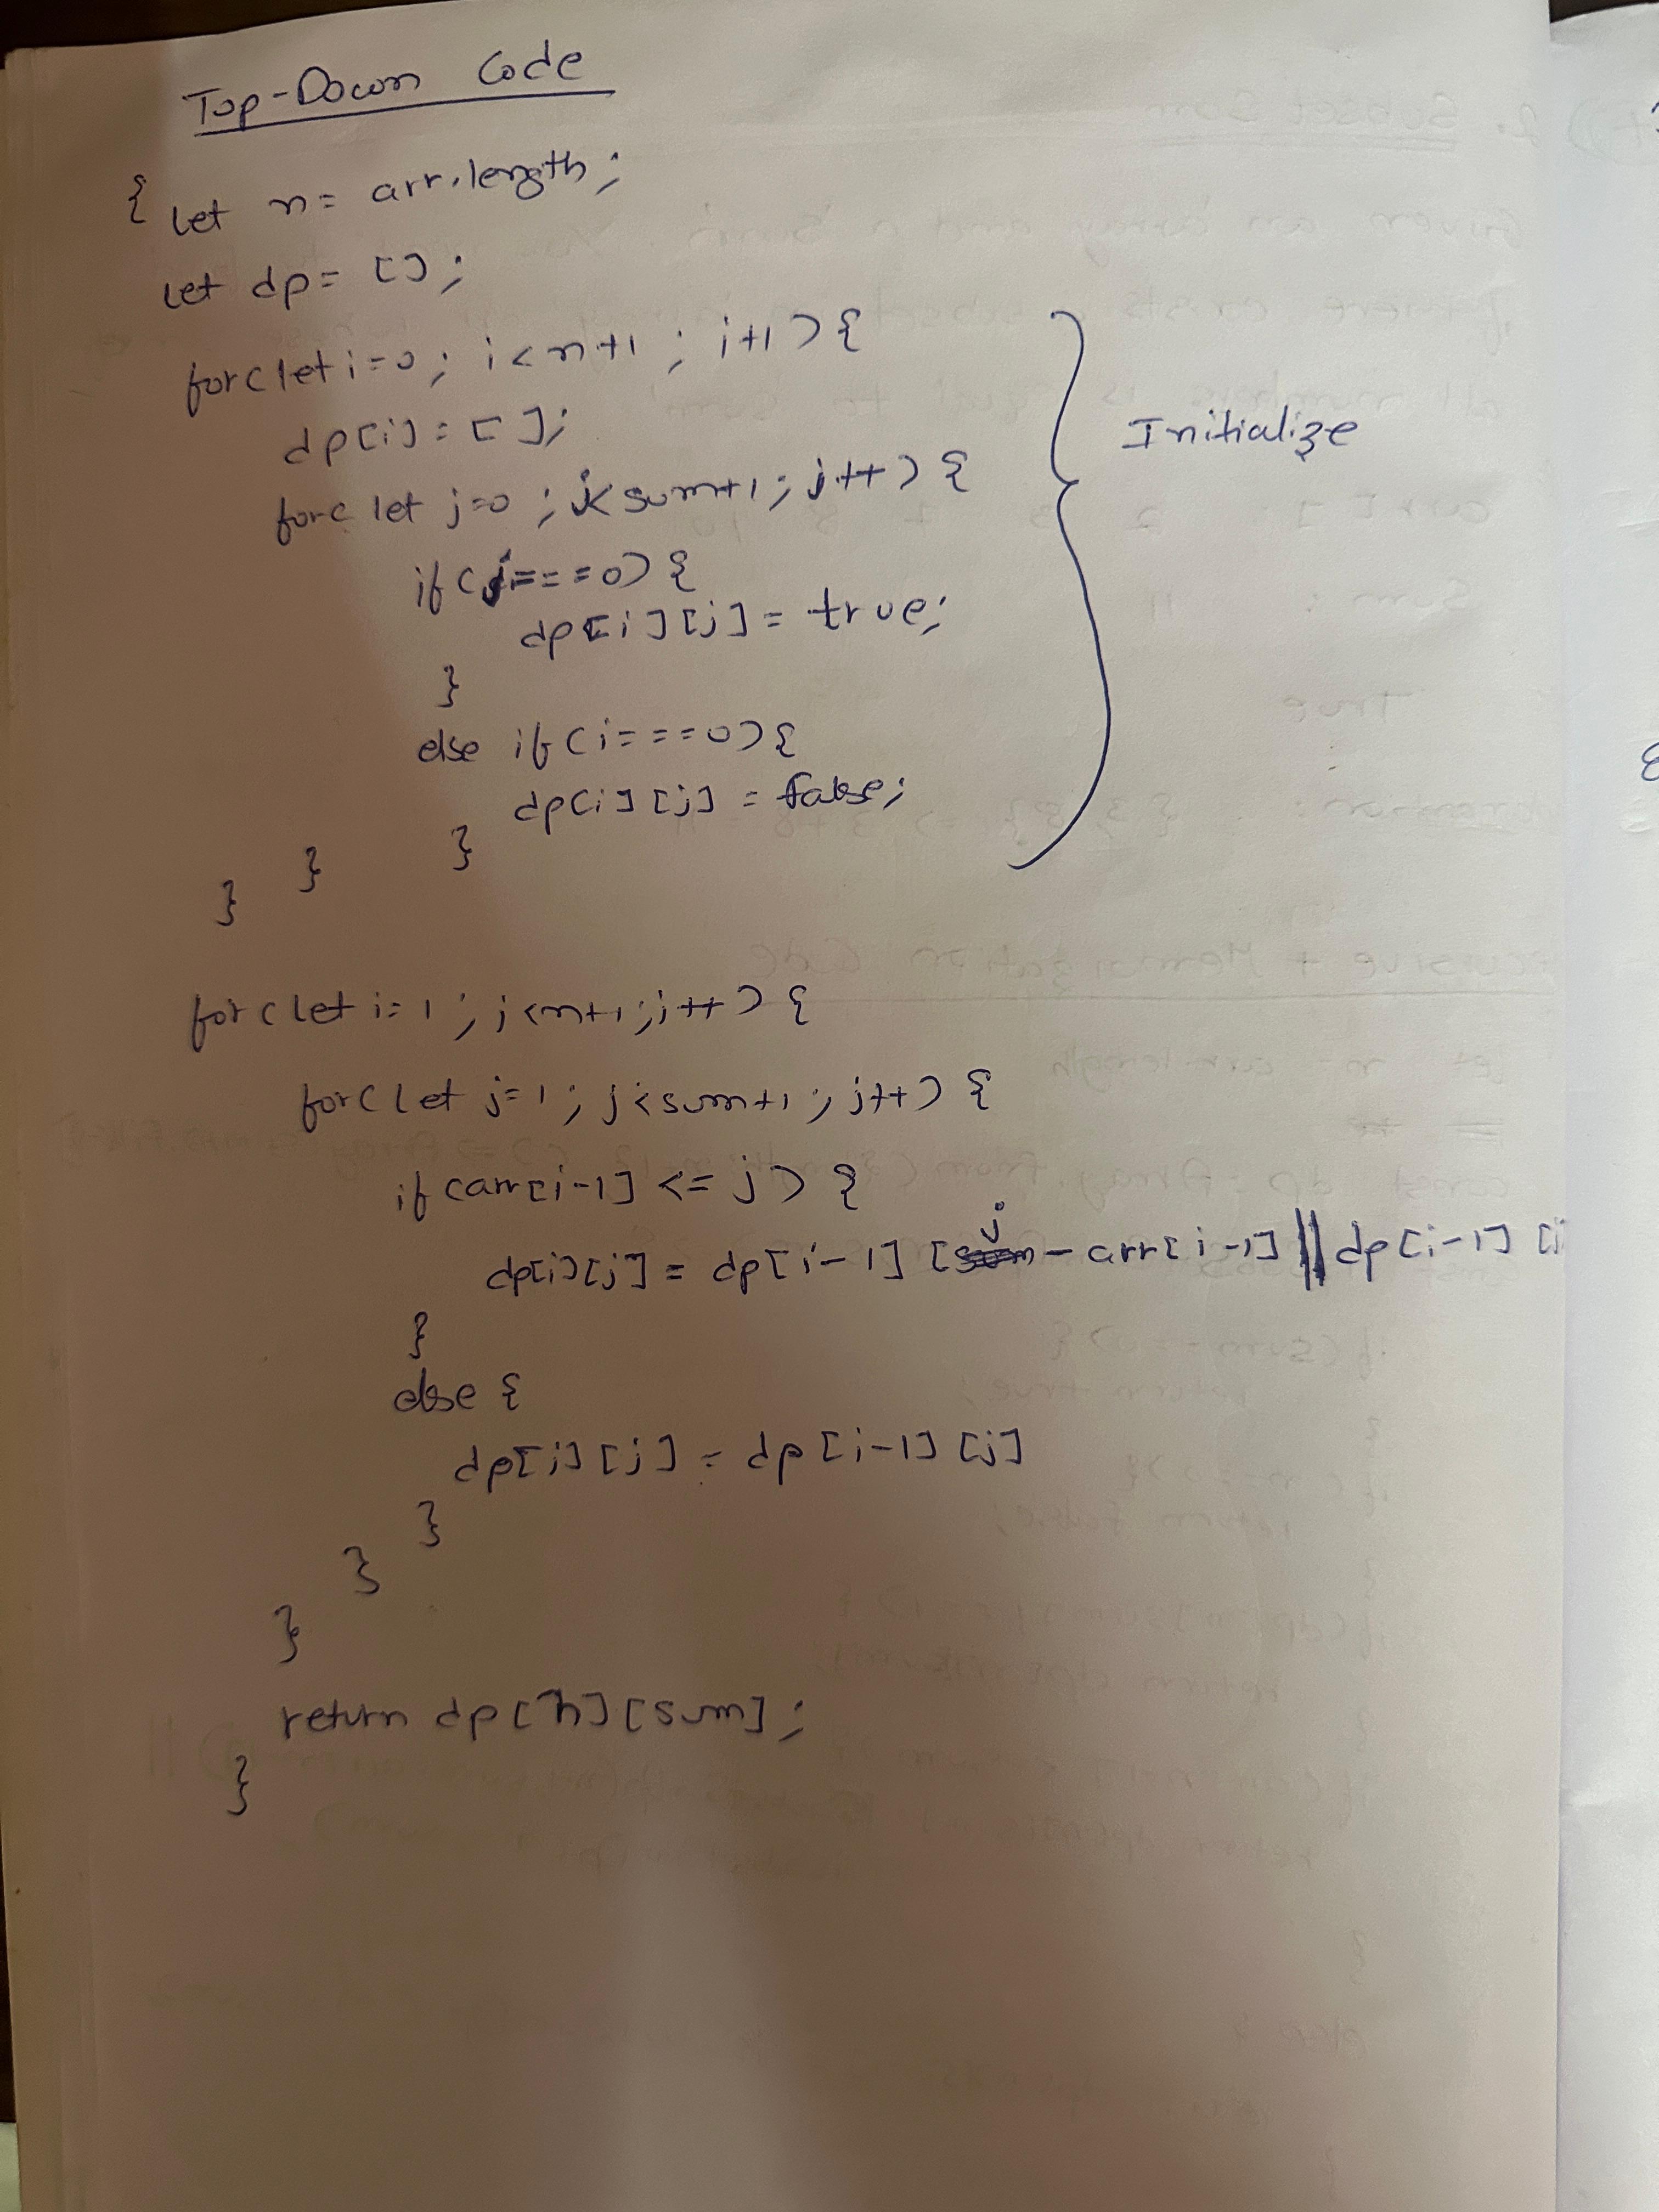 Top-Down Code
{ let n= arr.length;
let dp= [];
for(let i=0; i<n+1; i+1){
dp[i]=[];
for(let j=0; j<sum+1; j++){
Initialize
if(j===0){
dp[i][j]=true;
}
else if(i===0){
dp[i][j]=false;
}
}
}
for(let i=1; i<n+1; i++){
for(let j=1; j<sum+1; j++){
if(arr[i-1]<=j){
dp[i][j]=dp[i-1][j-arr[i-1]||dp[i-1][
}
else {
dp[i][j]=dp[i-1][j]
}
}
}
return dp[n][sum];
}